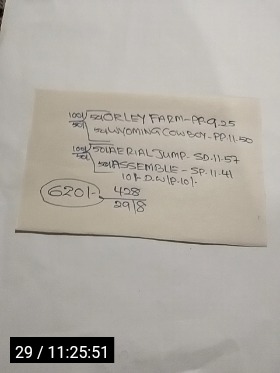 100/ 50/ ORLEY FARM - PR-9.25
50/ 50/ WYOMING COWBOY - PP-11-50
100/ 50/ AERIAL JUMP - SD-11-57
50/ 50/ ASSEMBLE - SP-11-41
10/- D.W/P-10/-
620/- 428
29/8
29 / 11:25:51